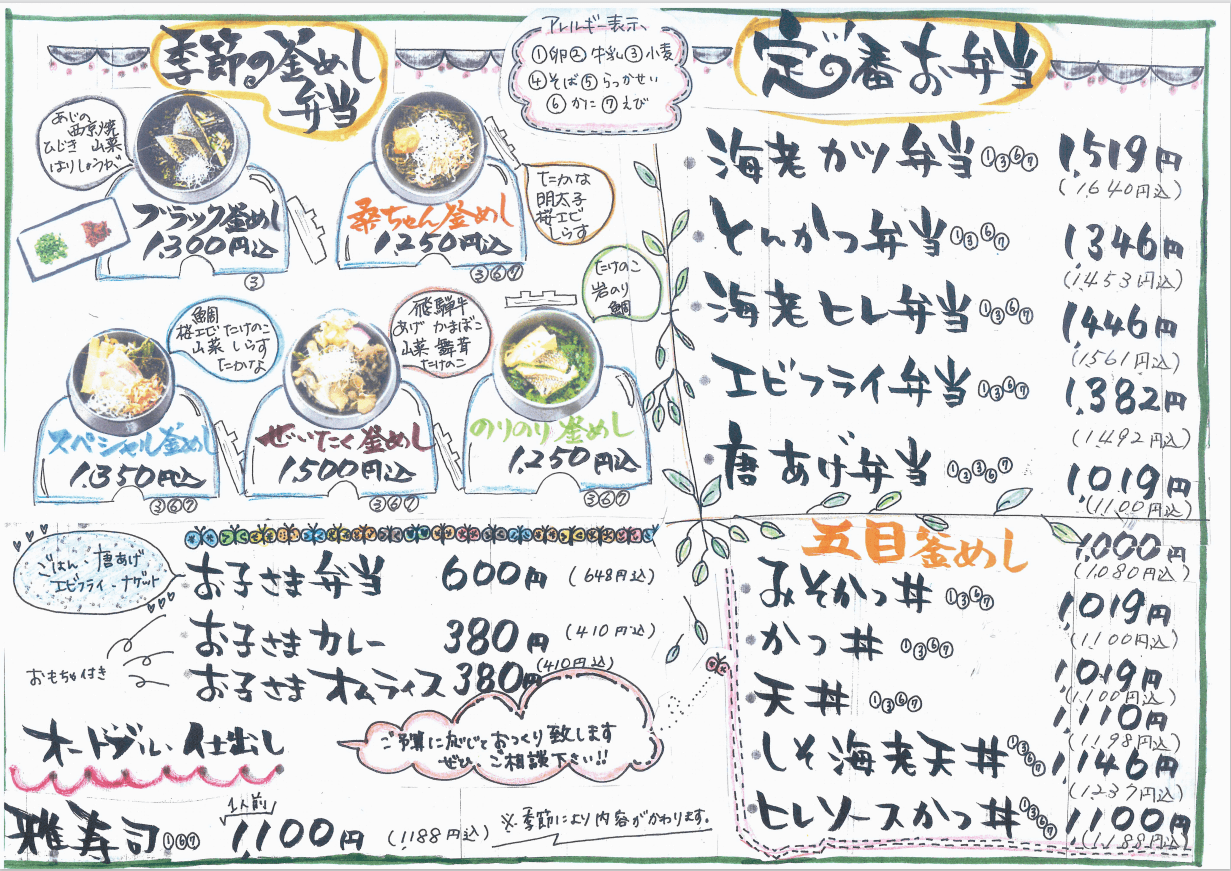 季節の釜めし
弁当
アレルギー表示
①卵②牛乳③小麦
④そば⑤らっかせい
⑥かに⑦えび
定番お弁当
あじの
西京焼
ひじき 山菜
はりしょうが
ブラック釜めし
1,300円込
③
桑ちゃん釜めし
1,250円込
③⑥⑦
たかな
明太子
桜エビ
しらす
鯛
桜エビ たけのこ
山菜 しらす
たかな
スペシャル釜めし
1,350円込
③⑥⑦
飛騨牛
あげ かまぼこ
山菜 舞茸
たけのこ
ぜいたく釜めし
1,500円込
③⑥⑦
たけのこ
岩のり
鯛
のりのり釜めし
1,250円込
③⑥⑦
海老カツ弁当①③⑥⑦ 1,519円
(1,640円込)
とんかつ弁当①③⑥⑦ 1,346円
(1,453円込)
海老ヒレ弁当①③⑥⑦ 1,446円
(1,561円込)
エビフライ弁当①③⑥⑦ 1,382円
(1,492円込)
唐あげ弁当①③⑥⑦ 1,019円
(1,100円込)
ごはん・唐あげ
エビフライ・ナゲット
お子さま弁当 600円 (648円込)
お子さまカレー 380円 (410円込)
お子さまオムライス 380円 (410円込)
おもちゃ付き
オードブル・仕出し
ご予算に応じておつくり致します
ぜひ、ご相談下さい!!
雅寿司①⑥⑦ 1人前 1,100円 (1188円込)
※季節により内容がかわります。
五目釜めし 1,000円
(1,080円込)
みそかつ丼①③⑥⑦ 1,019円
(1,100円込)
かつ丼①③⑥⑦ 1,019円
(1,100円込)
天丼①③⑥⑦ 1,110円
(1,198円込)
しそ海老天丼①③⑥⑦ 1,146円
(1,237円込)
ヒレソースかつ丼①③⑥⑦ 1,100円
(1,188円込)